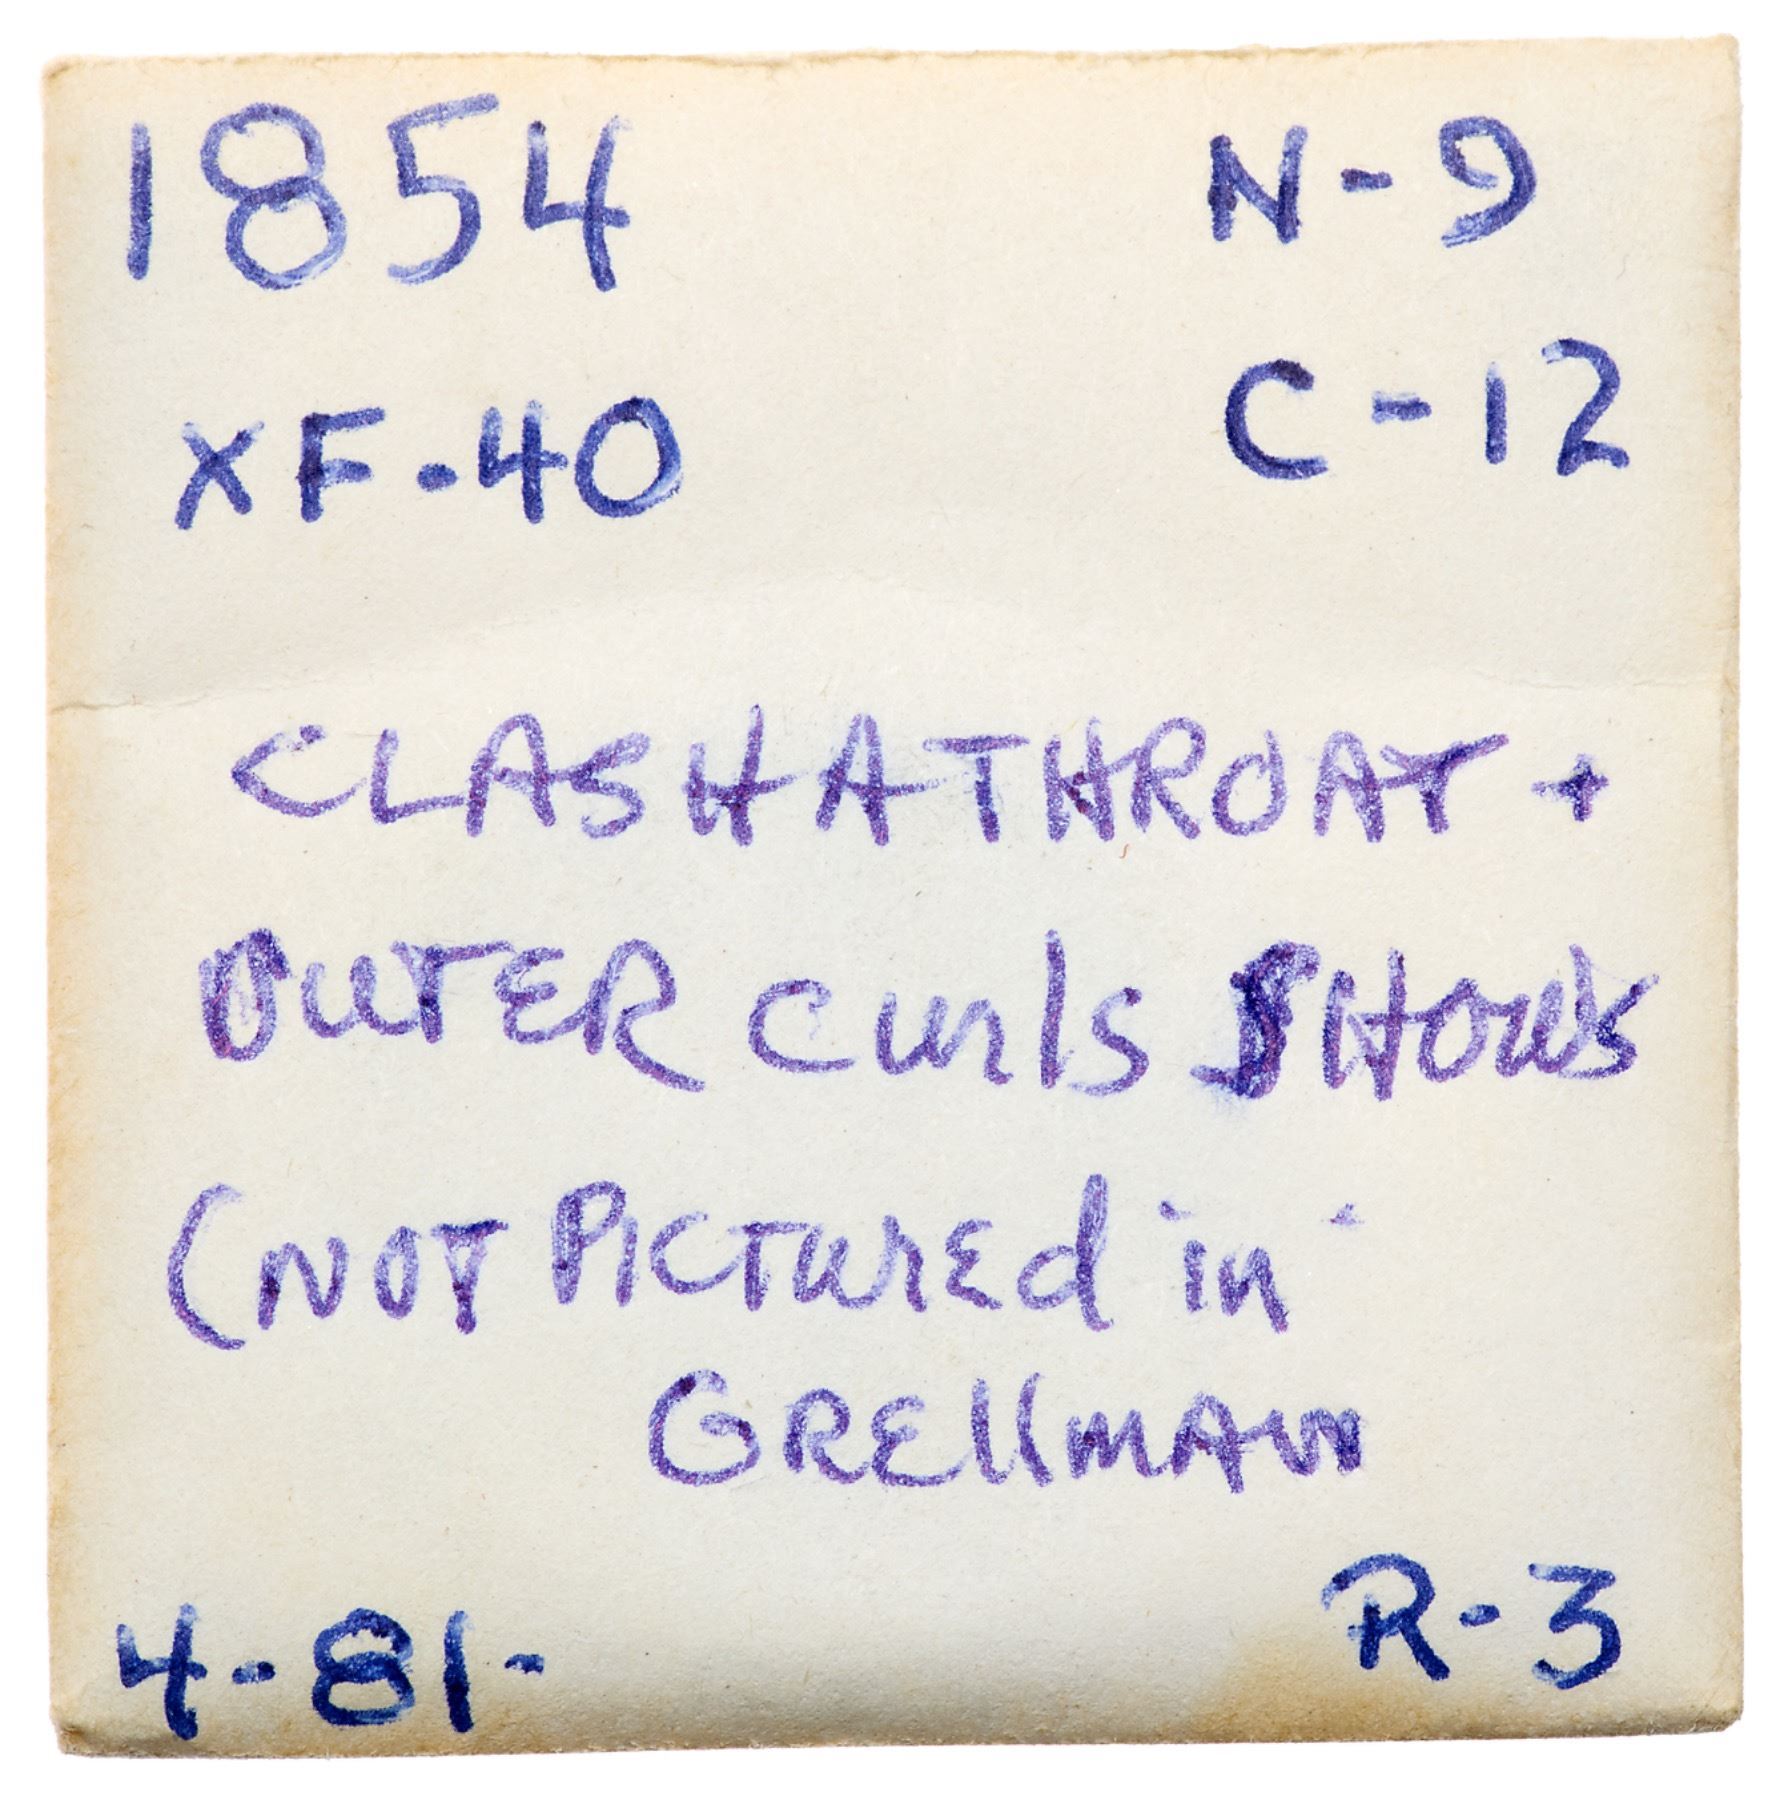 1854 N-9
XF-40 C-12
CLASH A THROAT +
OUTER CURLS SHOWS
(NOT PICTURED in
GRELLMAN
4-81- R-3